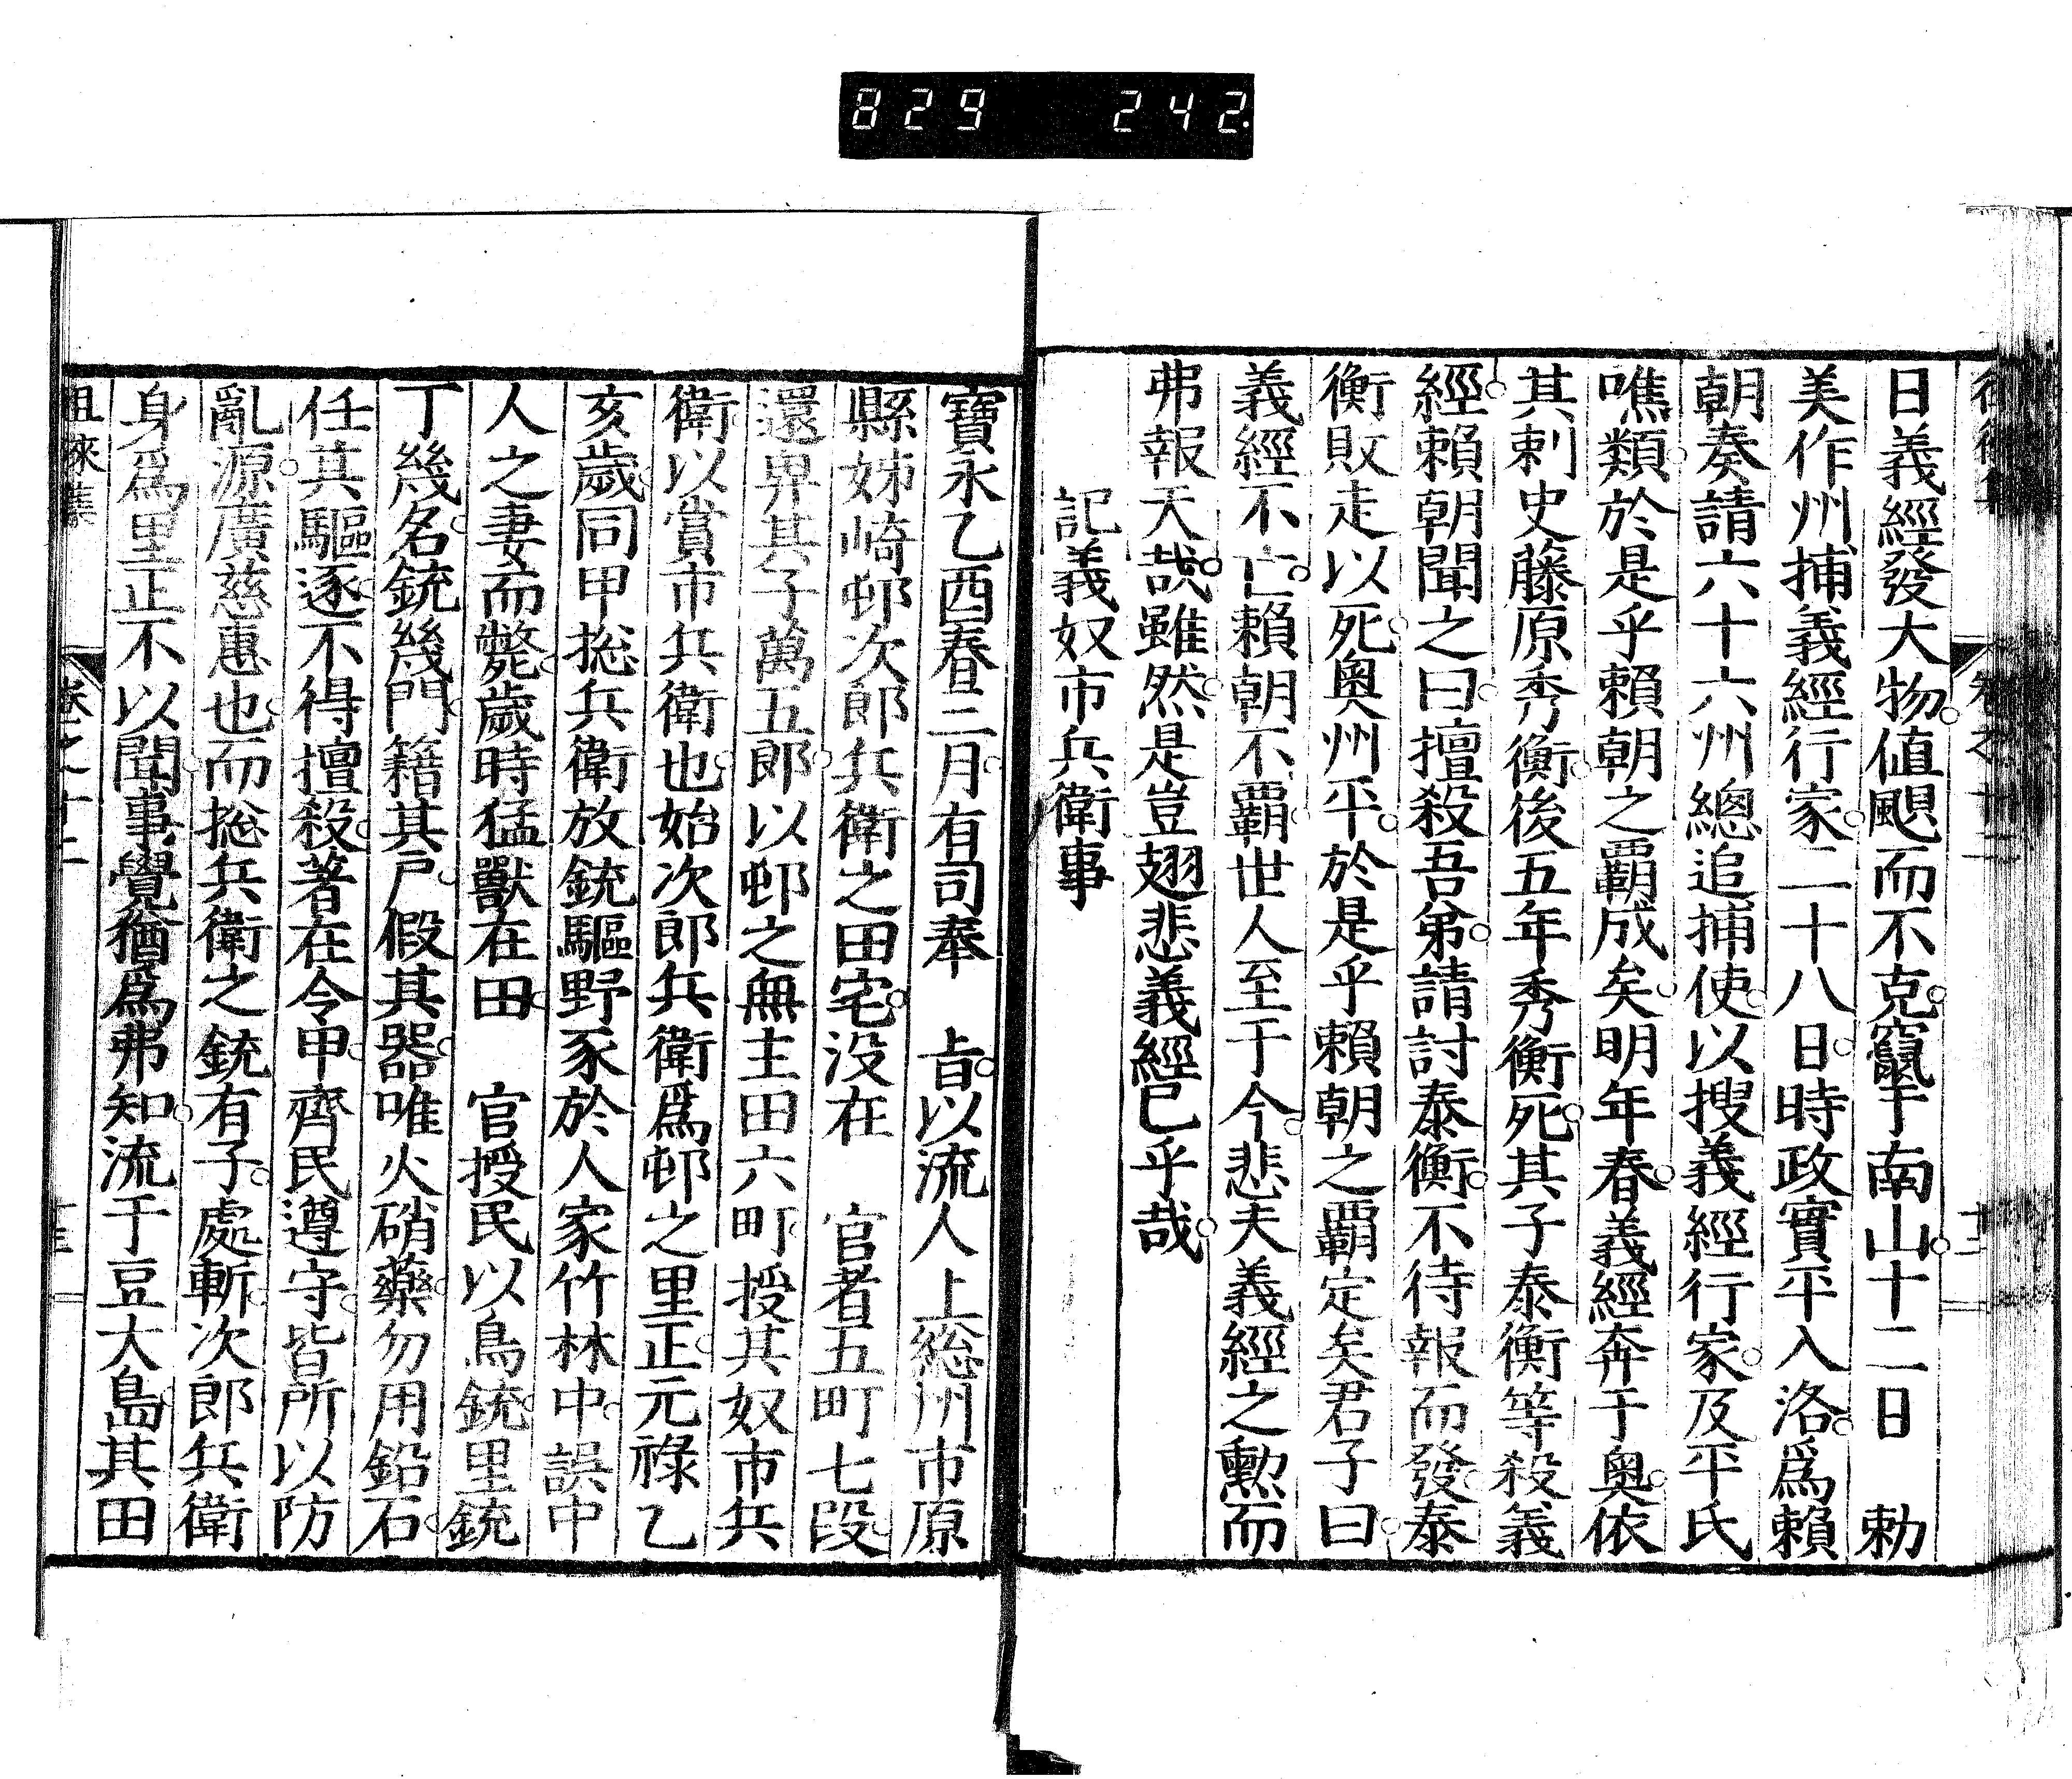 829 242
日義經發大物値颶而不克竄于南山十二日 勅
美作州捕義經行家二十八日時政實平入洛爲賴
朝奏請六十六州總追捕使以搜義經行家及平氏
噍類於是乎賴朝之覇成矣明年春義經奔于奧依
其刺史藤原秀衡後五年秀衡死其子泰衡等殺義
經賴朝聞之曰擅殺吾弟請討泰衡不待報而發泰
衡敗走以死奧州平於是乎賴朝之覇定矣君子曰
義經不亡賴朝不覇世人至于今悲夫義經之勲而
弗報天哉雖然是豈翅悲義經已乎哉
記義奴市兵衛事
寶永乙酉春三月有司奉 旨以流人上総州市原
縣姊崎邨次郎兵衛之田宅没在 官者五町七段
還畀其子萬五郎以邨之無主田六町授其奴市兵
衛以賞市兵衛也始次郎兵衛爲邨之里正元祿乙
亥歲同甲捴兵衛放銃驅野豕於人家竹林中誤中
人之妻而斃歲時猛獸在田 官授民以鳥銃里銃
丁幾名銃幾門籍其戸假其器唯火硝藥勿用鉛石
任其驅逐不得擅殺著在令甲齊民遵守皆所以防
亂源廣慈惠也而捴兵衛之銃有子處斬次郎兵衛
身爲里正不以聞事覺猶爲弗知流于豆大島其田
徂徠集 卷之十二 十三